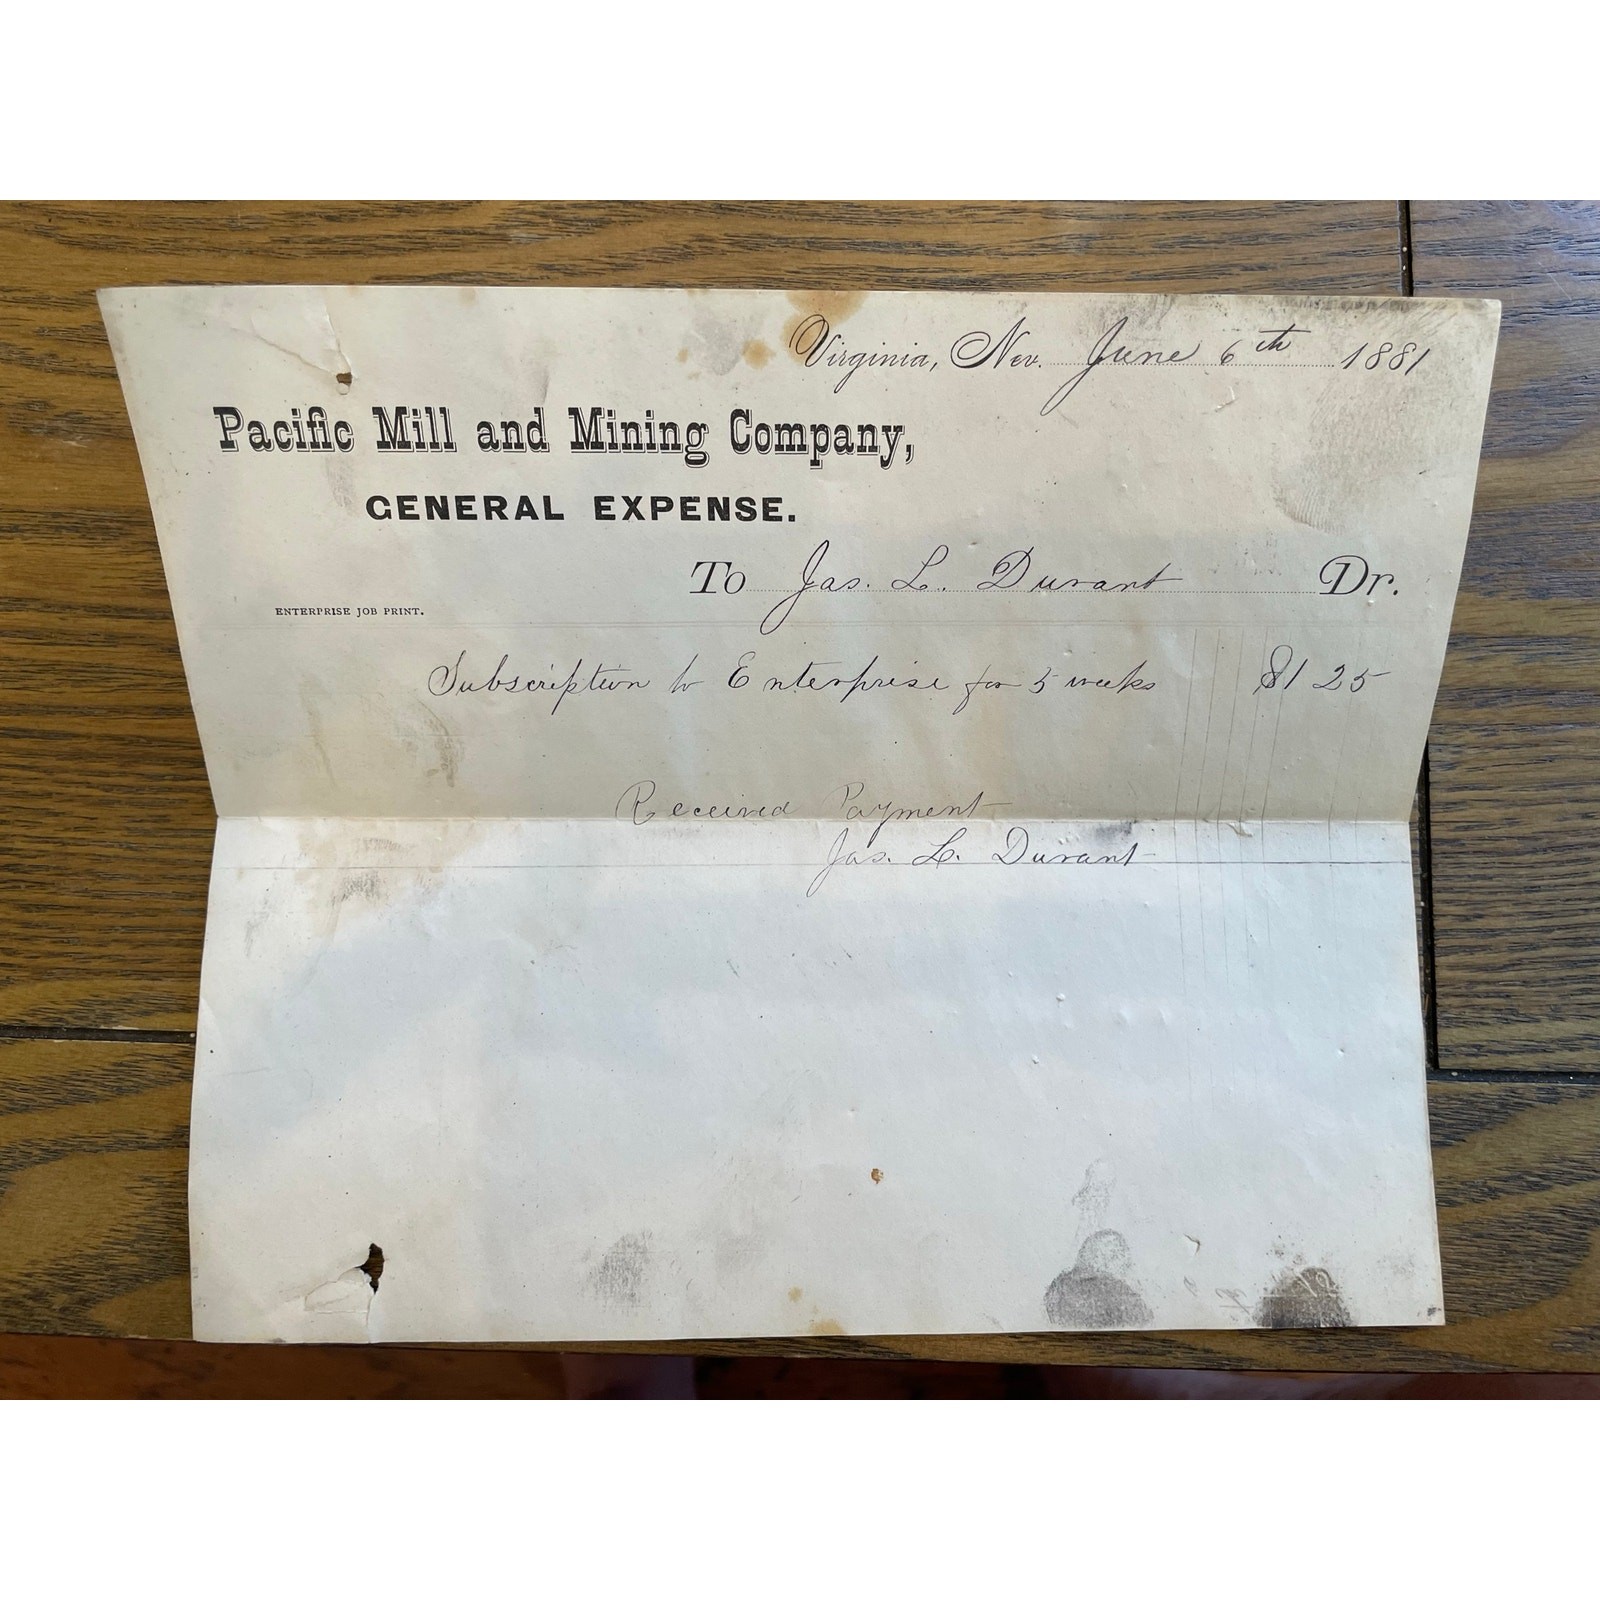 Virginia, Nev. June 6th 1881
Pacific Mill and Mining Company,
GENERAL EXPENSE.
To Jas. L. Durant Dr.
ENTERPRISE JOB PRINT.
Subscription to Enterprise for 5 weeks $1 25
Received Payment
Jas. L. Durant